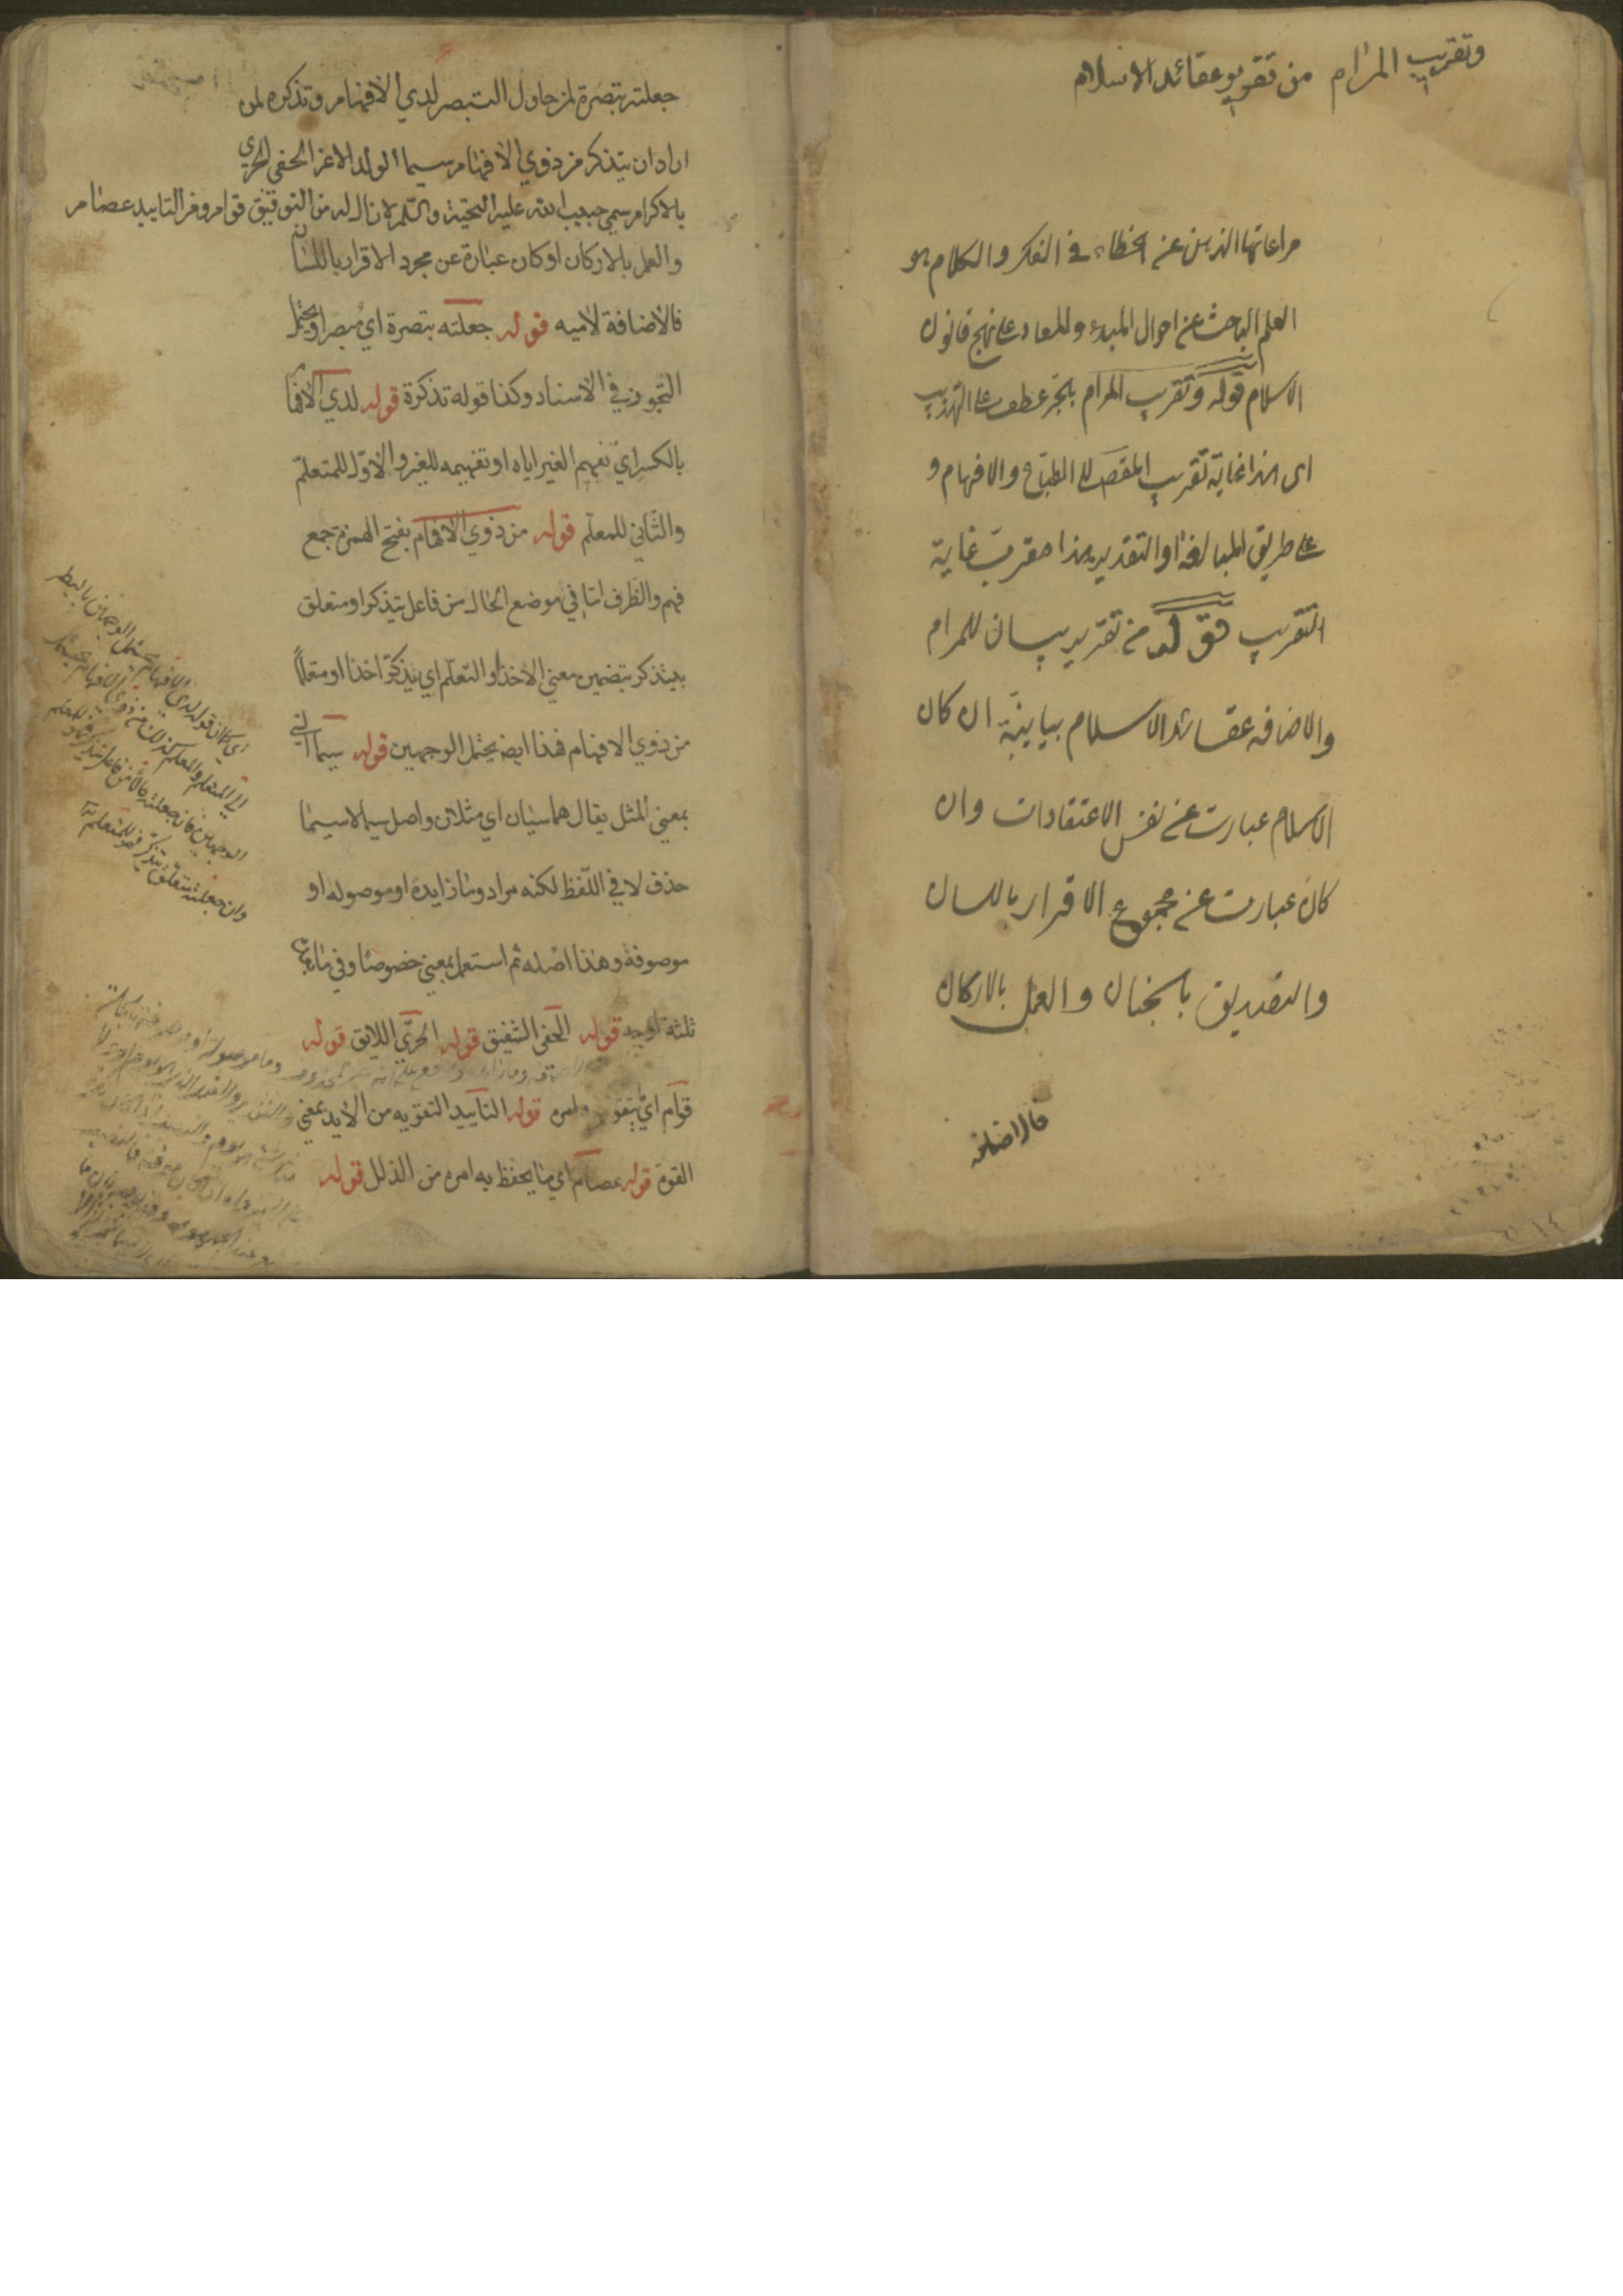 وتقريب المرام من تقرير عقائد الاسلام
مراعاتها الذهن عن الخطاء في الفكر والكلام هو
العلم الباحث عن احوال المبدء والمعاد على نهج قانون
الاسلام قوله وتقريب المرام بالجر عطف على التهذيب
اى هذا غاية تقريب المقصد الى الطبايع والافهام و
على طريق المبالغة او التقدير هذا مقرب غاية
التقريب قوله من تقرير بيان للمرام
والاضافه عقائد الاسلام بيانية ان كان
الاسلام عبارت عن نفس الاعتقادات وان
كان عبارت عن مجموع الاقرار باللسان
والتصديق بالجنان والعمل بالاركان
فالاضافه
جعلته تبصرة لمن حاول التبصر لدي الافهام وتذكره لمن
اراد ان يتذكر من ذوي الافهام سيما الولد الاعز الحفي الحري
بالاكرام سمي حبيب الله عليه التحية والسلام لازال له من التوفيق قوام ومن التاييد عصام
والعمل بلاركان او كان عبارة عن مجرد الاقرار باللسان
فالاضافة لاميه قوله جعلته تبصرة اي مبصرا ويحتمل
التجوز في الاسناد وكذا قوله تذكرة قوله لدي الافهام
بالكسر اي تفهيم الغير اياه او تفهيمه للغير والاول للمتعلم
والثاني للمعلم قوله من ذوي الافهام بفتح الهمزة جمع
فهم والظرف اما في موضع الحال من فاعل يتذكر او متعلق
بيتذكر بتضمين معني الاخذ او التعلم اي يتذكر اخذا او متعلما
من ذوي الافهام فهذا ايضه يحتمل الوجهين قوله سيما السي
بمعني المثل يقال هما سيان اي مثلان واصل سيما لاسيما
حذف لا في اللفظ لكنه مراد وما زايدة او موصوله او
موصوفة وهذا اصله ثم استعمل بمعني خصوصا وفي ما بعده
ثلثه اوجه قوله الحفي الشفيق قوله الحري اللايق قوله
قوام اي يقوم امره قوله التاييد التقويه من الايد بمعني
القوة قوله عصام اي ما يحفظ به امره من الذلل قوله
اي كما ان قوله لدي الافهام يحتمل الوجهين بالنظر
الي المتعلم والمعلم كذلك من ذوي الافهام يحتمل
الوجهين فان جعلته حالا من فاعل يتذكر فهو للمعلم
وان جعلته متعلق بيتذكر فهو للمتعلم